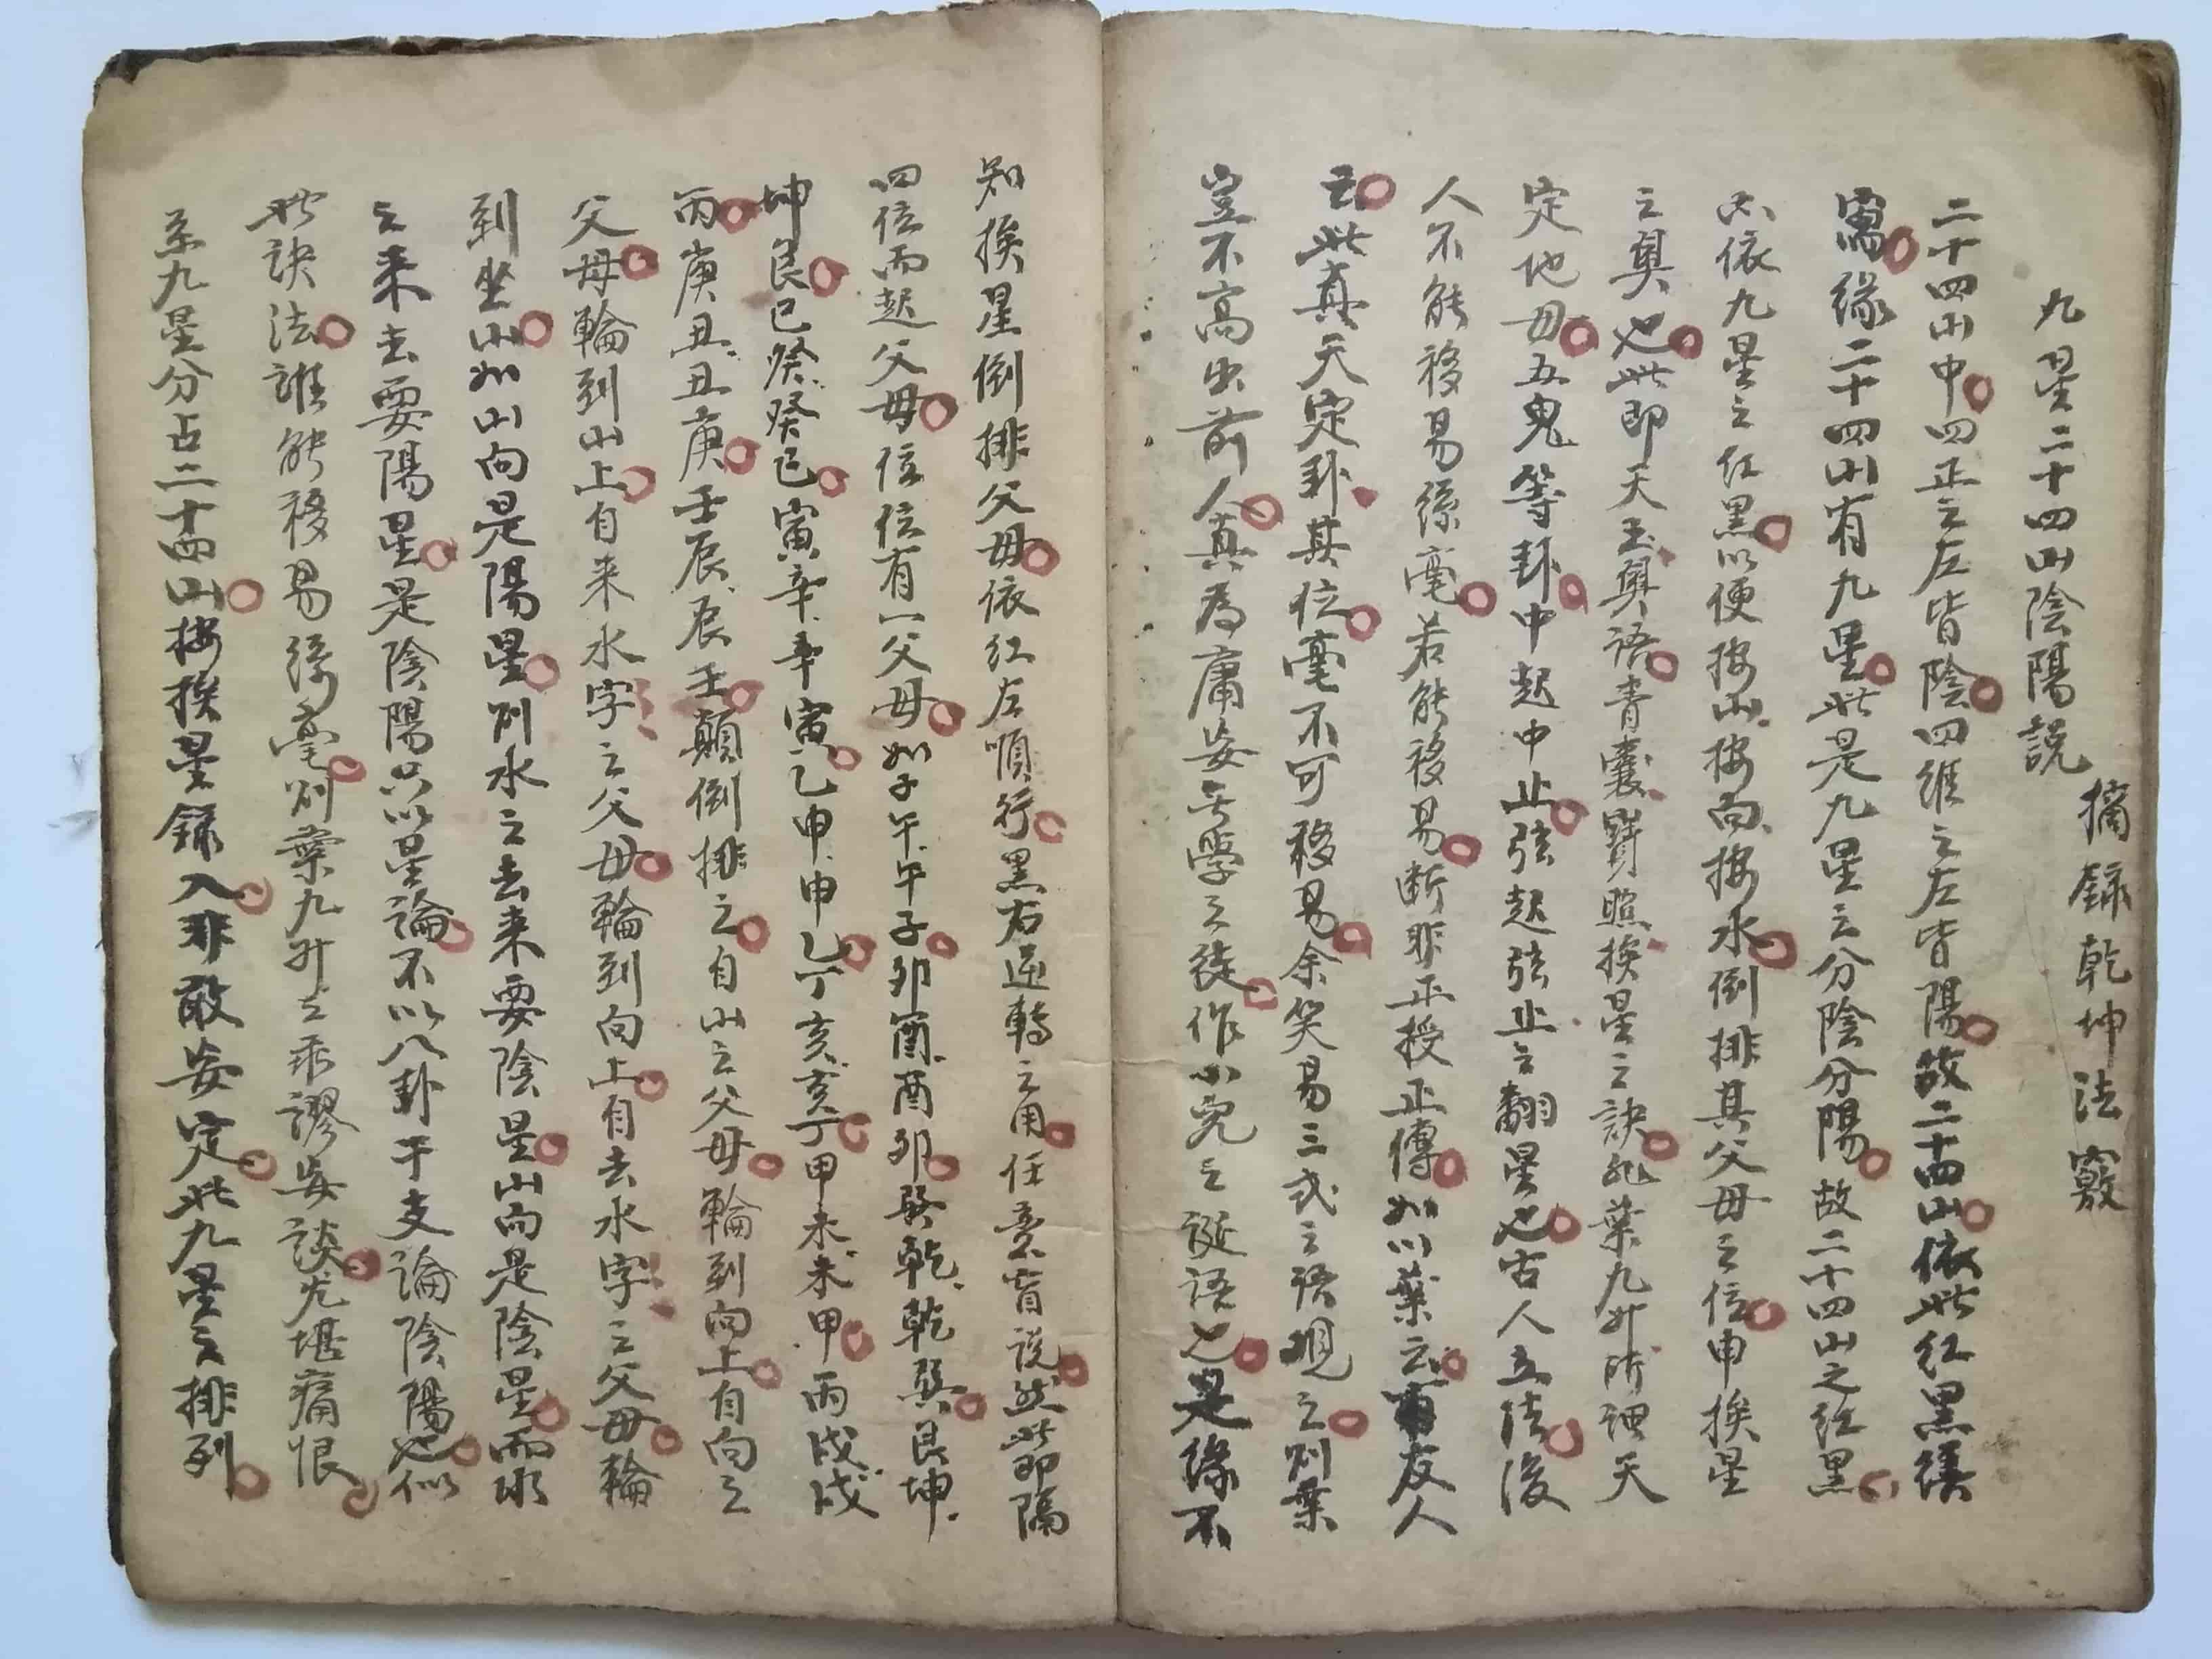 摘錄乾坤法竅
九星二十四山陰陽說
二十四山中四正之左皆陰四維之左皆陽故二十四山依此紅黑
寫緣二十四山有九星此是九星之分陰分陽故二十四山之紅黑
必依九星之紅黑以便按山按向按水倒排其父母之位申挨星
之奧也此即天玉奧語青囊寶照挨星之訣非葉九升所謂天
定地母五鬼等卦中起中止弦起弦止之翻星也古人立法後
人不能移易絲毫若能移易斷非正授正傳如以葉云友人
云此真天定卦其位毫不可移易余笑易三式之語觀之則葉
豈不高出前人真為庸妄無學之徒作小兒之誕語也是緣不
知挨星倒排父母依紅左順行黑右逆轉之用任意盲說然此即隔
四位而起父母位位有一父母如子午午子卯酉酉卯巽乾乾巽艮坤
坤艮巳癸癸巳寅辛辛寅乙申申乙丁亥亥丁甲未未甲丙戌戌
丙庚丑丑庚壬辰辰壬顛倒排之自山之父母輪到向上自向之
父母輪到山上自來水字之父母輪到向上自去水字之父母輪
到坐山如山向是陽星則水之去來要陰星山向是陰星而水
之來去要陽星是陰陽只以星論不以八卦干支論陰陽也似
此訣法誰能移易絲毫則葉九升之乖謬妄談尤堪痛恨
系九星分占二十四山按挨星錄入非敢妄定此九星之排列